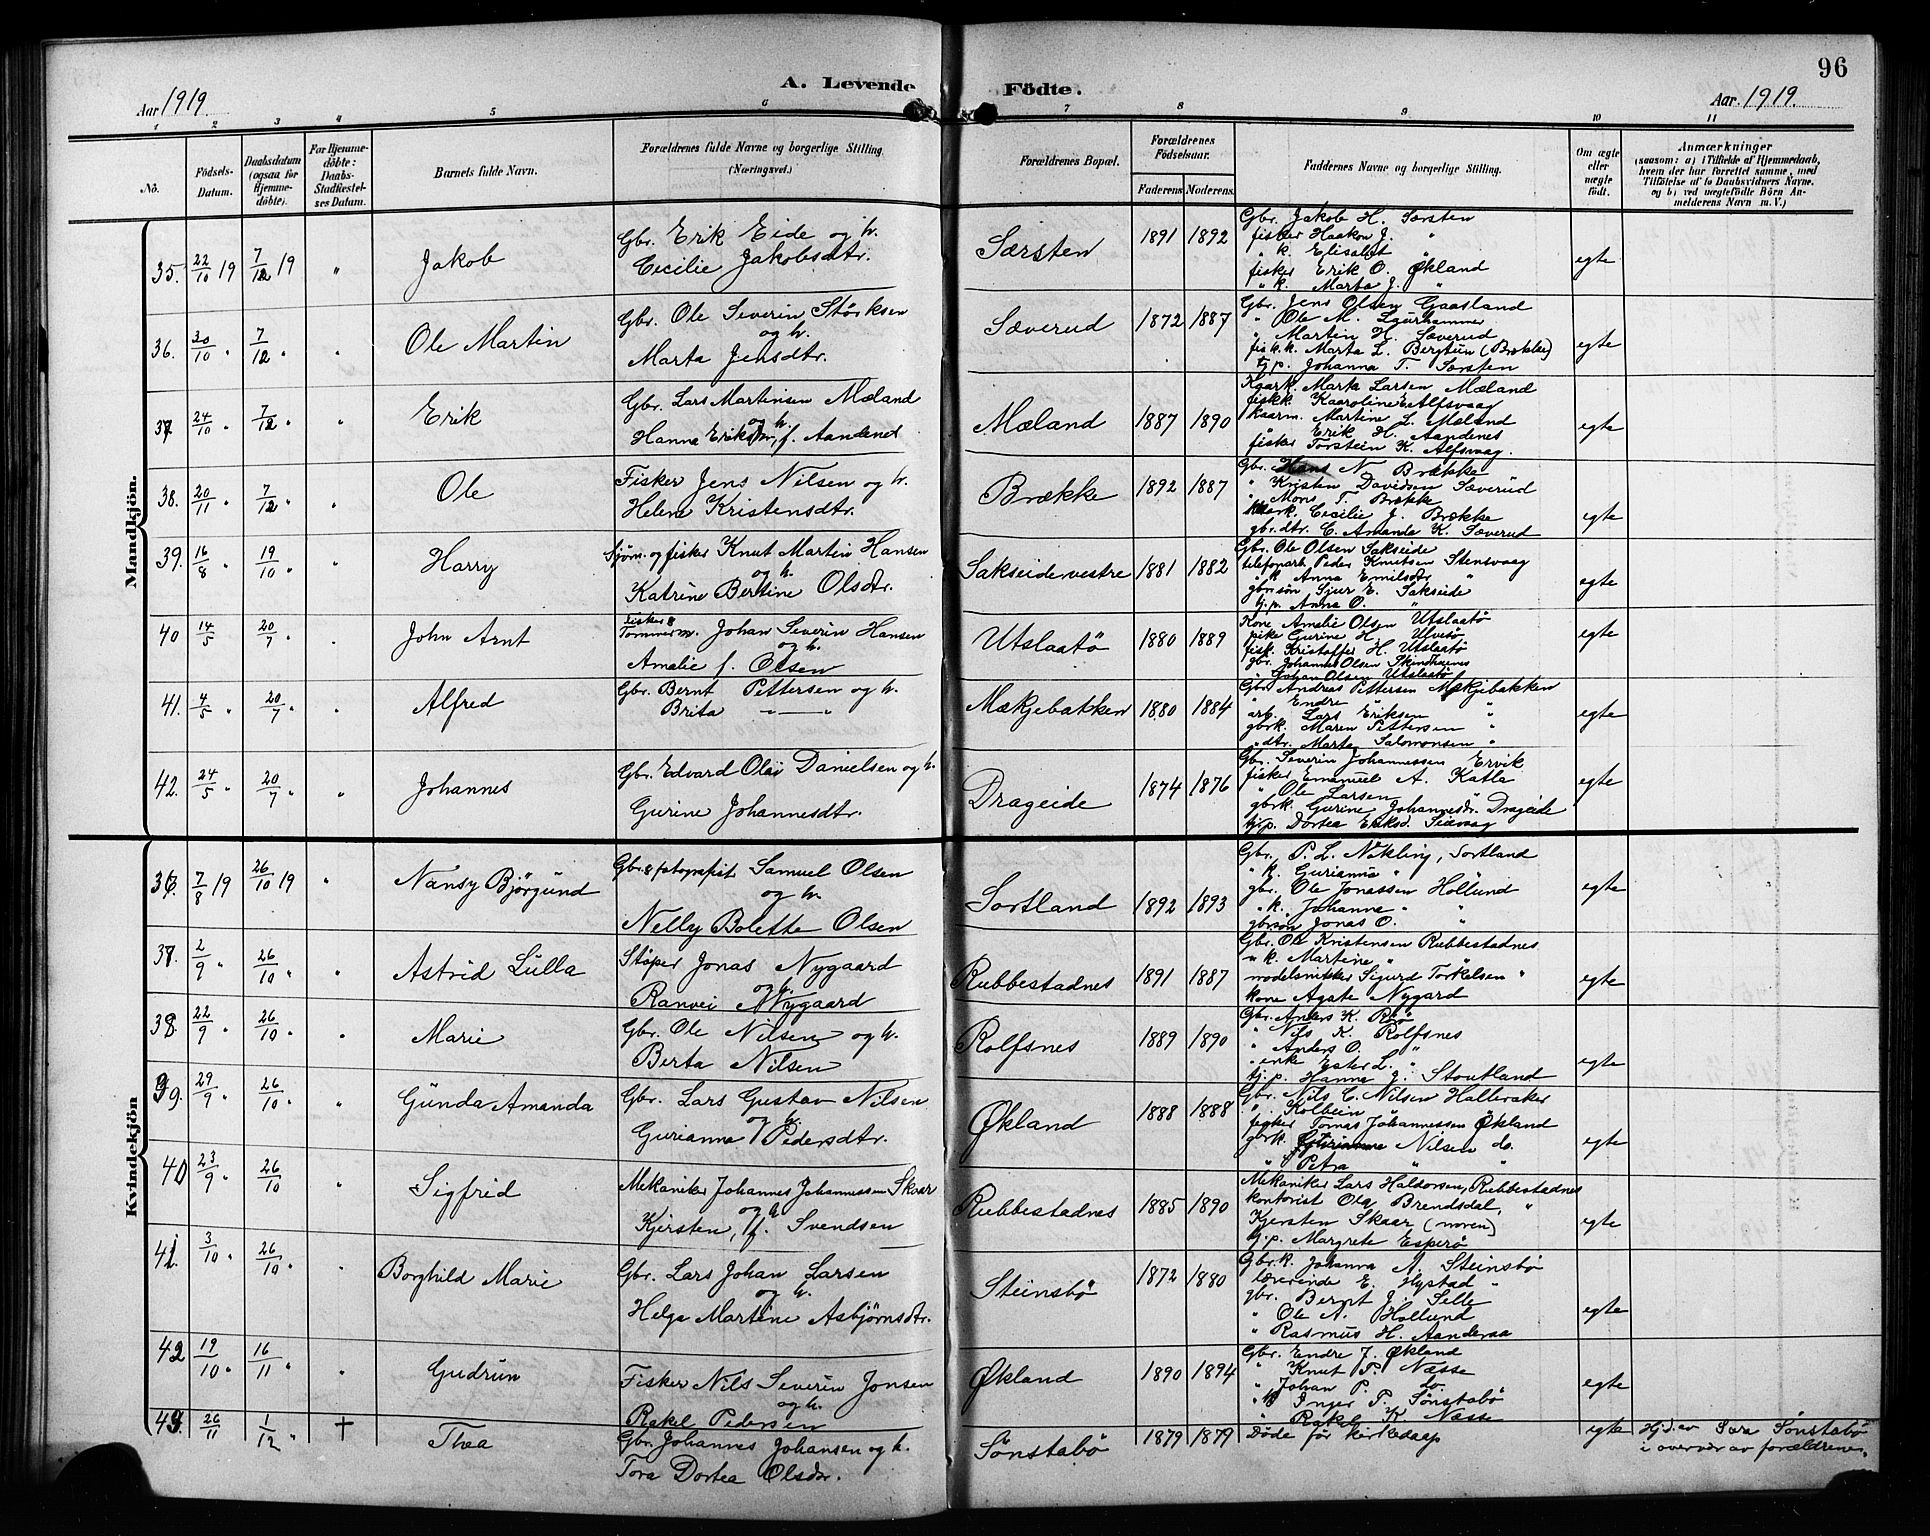 96
A. Levende Födte.
Aar 1919
Aar 1919.
1 2 3 4 5 6 7 8 9 10 11
No.
Födsels-Datum.
Daabsdatum (ogsaa for Hjemme-döbte).
For Hjemme-döbte: Daabs-Stadfæstel-ses Datum.
Barnets fulde Navn.
Forældrenes fulde Navne og borgerlige Stilling (Næringsvei.)
Forældrenes Bopæl.
Forældrenes Födselsaar.
Faderens Moderens.
Faddernes Navne og borgerlige Stilling.
Om ægte eller uægte födt.
Anmærkninger
(saasom: a) i Tilfælde af Hjemmedaab, hvem der har forrettet samme, med Tilföielse af to Daabsvidners Navne. og b) ved uægtefödte Börn An-melderens Navn m. V.)
Mandkjön.
35. 22/10 19 7/12 19 " Jakob
Gbr. Erik Eide og h.
Cecilie Jakobsdtr.
Særsten 1891 1892
Gbr. Jakob H. Særsten
fisker Haakon J. "
" k. Elisabet "
fisker Erik O. Økland
" k. Marta J. "
egte
36. 30/10 " 7/12 " " Ole Martin
Gbr. Ole Severin Størksen
og h.
Marta Jensdtr.
Sæverud 1872 1887
Gbr. Jens Olsen Gaasland
" Ole M.
" Martin H. Sæverud
fisk.k. Marta L. Bergtun (Brække)
tj.p. Johanna T. Særsten
egte
37. 24/10 " 7/12 " " Erik
Gbr. Lars Martinsen Mæland
og h.
Hanna f. Aandenes
Mæland 1887 1890
Kaark. Marta Larsen Mæland
fiskk. Karoline E. Alfsvaag
kaarm. Martine L. Mæland
Erik H. Aandenes
fisker Torstein K. Alfsvaag.
egte
38. 20/11 " 7/12 " " Ole
Fisker Jens Nilsen og h.
Helene Kristensdtr.
Brække 1892 1887
Gbr. Hans N. Brække
" Kristen Davidsen Sæverud
" Mons T. Brække
Cecilie J. Brække
gbr. dtr. C. Amanda K. Sæverud
egte
39. 16/8 " 19/10 " " Harry
Sjöm. og fisker Knut Martin Hansen
og h.
Katrine Bertine Olsdtr.
Sakseide vestre 1881 1882
Gbr. Ole Olsen Sakseide
telefonarb. Peder Knutsen Stensvaag
" k Anna Emilsdtr "
gbrsön Sjur E. Sakseide
tj.p. Anna O. "
egte
40 14/5 20/7 " John Arnt
Fisker &
Tømmerm. Johan Severin Hansen
og h.
Amalie f. Olsen
Utslaatö 1880 1889
Kone Amalie Olsen Utslaatö
pike Gurine H.
fisk. Kristoffer H. Utslaatö
gbr. Johannes Olsen
" Johan Olsen Utslaatö
egte
41. 4/5 " 20/7 " " Alfred
Gbr. Bernt Pettersen og h.
Brita — " —
Mækjebakken 1880 1884
Gbr Andreas Pettersen Mækjebakken
" Endre " "
arb. Lars Eriksen "
gbrk. Maren Pettersen "
" dtr. Marta Salomonsen "
egte
42. 24/5 " 20/7 " " Johannes
Gbr. Edvard Olai Danielsen og h.
Gurine Johannesdtr.
Drageide 1874 1876
Gbr. Severin Johannessen Ervik
fisker Emanuel A. Katla
" Ole Larsen
gbrk. Gurine Johannesdr. Drageide
tj.p. Dortea Eriksd. Seivaag
egte
Kvindekjön
36. 7/8 19 26/10 19 " Nansy Björgund
Gbr & fotografist Samuel Olsen
og h.
Nelly Bolette Olsen
Sortland 1892 1893
Gbr. P. L. Nökling, Sortland
" k. Gurianna "
gbr. Ole Jonassen Hollund
" k. Johanne " "
gbrsön Jonas O. "
egte
37. 2/9 " 26/10 " " Astrid Lulla
Støper Jonas Nygaard
og h.
Ranvei Nygaard
Rubbestadnes 1891 1887
Gbr. Ole Kristensen Rubbestadnes
" k. Martine "
modelsnikker Sigurd Torkelsen "
kone Agate Nygard
egte
38. 22/9 " 26/10 " " Marie
Gbr. Ole Nilsen og h.
Berta Nilsen
Rolfsnes 1889 1890
Gbr. Anders K.
" Nils K. Rolfsnes
" Anders O. "
" enke Ester L. "
tj.p. Hanna J. Stoutland
egte
39. 29/9 " 26/10 " " Gunda Amanda
Gbr. Lars Gustav Nilsen
og h.
Gurianna Pedersdtr.
Økland 1888 1888
Gbr. Nils C. Nilsen Halleraker
" Kolbein "
fisker Tomas Johannessen Økland
gbrk. Gurianna Nilsen do.
" Petra " "
egte
40 23/9 " 26/10 " Sigfrid
Mekaniker Johannes Johannessen Skaar
og h.
Kjersten, f. Svendsen
Rubbestadnes 1885 1890
Mekaniker Lars Haldorsen, Rubbestadnes
kontorist Ola Brendsdal, "
Kjersten Skaar (moren)
tj.p. Margrete Esperö
egte
41. 3/10 " 26/10 " " Borghild Marie
Gbr. Lars Johan Larsen
og h.
Helga Martine Asbjørnsdtr.
Steinsbö 1872 1880
Gbr.k. Johanna A. Steinsbö
lærerinde E. Hystad "
gbr. Bernt J. Selle
" Ole A. Hollund
" Rasmus H. Aanderaa
egte
42 19/10 " 16/11 " " Gudrun
Fisker Nils Severin Jonsen
og h.
Rakel Pedersen
Økland 1890 1894
Gbr. Endre J. Økland
" Knut P. Næsse
" Johan P. do.
" k Inger T. Sønstabö
" Rakel K Næsse
egte
43 26/11 1/12 " + Thea
Gbr. Johannes Johansen og h.
Tora Dortea Olsdtr.
Sönstabö 1879 1879
Döde för kirkedaap
egte
Hjd. av Sara Sønstabö
i overvær av forældrene.